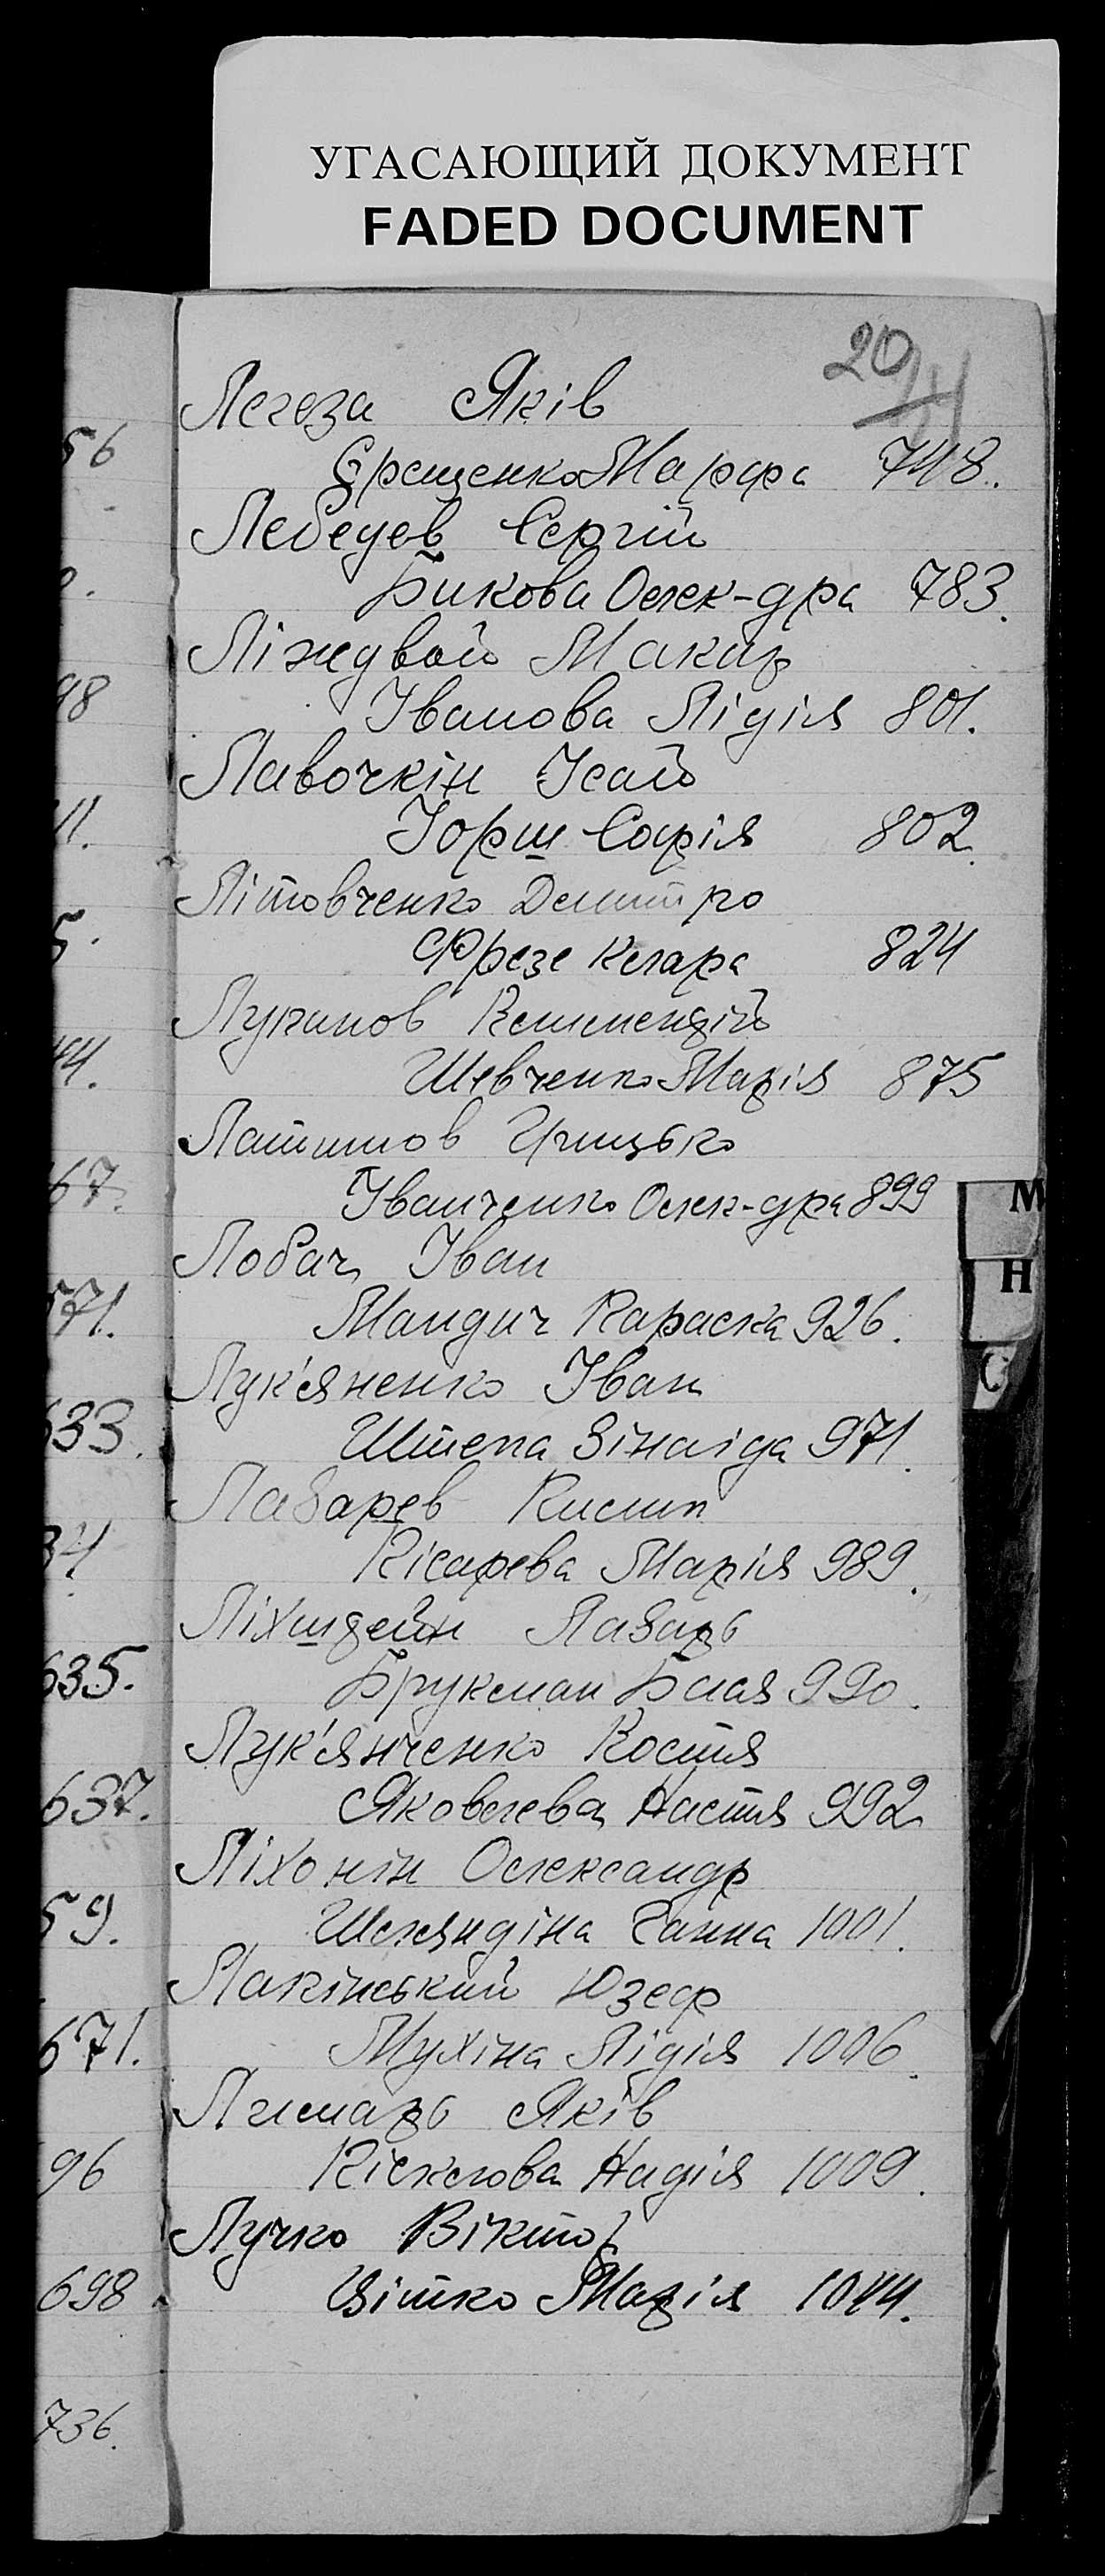 УГАСАЮЩИЙ ДОКУМЕНТ
FADED DOCUMENT
20
Легеза Яків
Єрещенко Марфа 748.
Лебедев Сергій
Бикова Олек-дра 783.
Ліждвой Макар
Іванова Лідія 801.
Лавочкін Ісай
Іорш Софія 802.
Літовченко Демитро
Фрезе Клара 824
Луканов Климентій
Шевченко Марія 875
Латишов Грицько
Іванченко Олек-дра 899
Лобач Іван
Мандич Параска 926.
Лук'яненко Іван
Штепа Зінаіда 971.
Лазарев Кисил
Кісарева Марія 989.
Ліхтдейн Лазарь
Брукман Блая 990.
Лук'янченко Костя
Яковлева Настя 992
Ліхонін Олександр
Шеляндіна Ганна 1001.
Лакінський Юзеф
Мухіна Лідія 1006.
Лимарь Яків
Кіслова Надія 1009.
Лучко Віктор
Вітко Марія 1044.
М
Н
С
56
98
11.
5.
44.
67.
571.
633.
34
635.
637.
59.
671.
96
698
736.